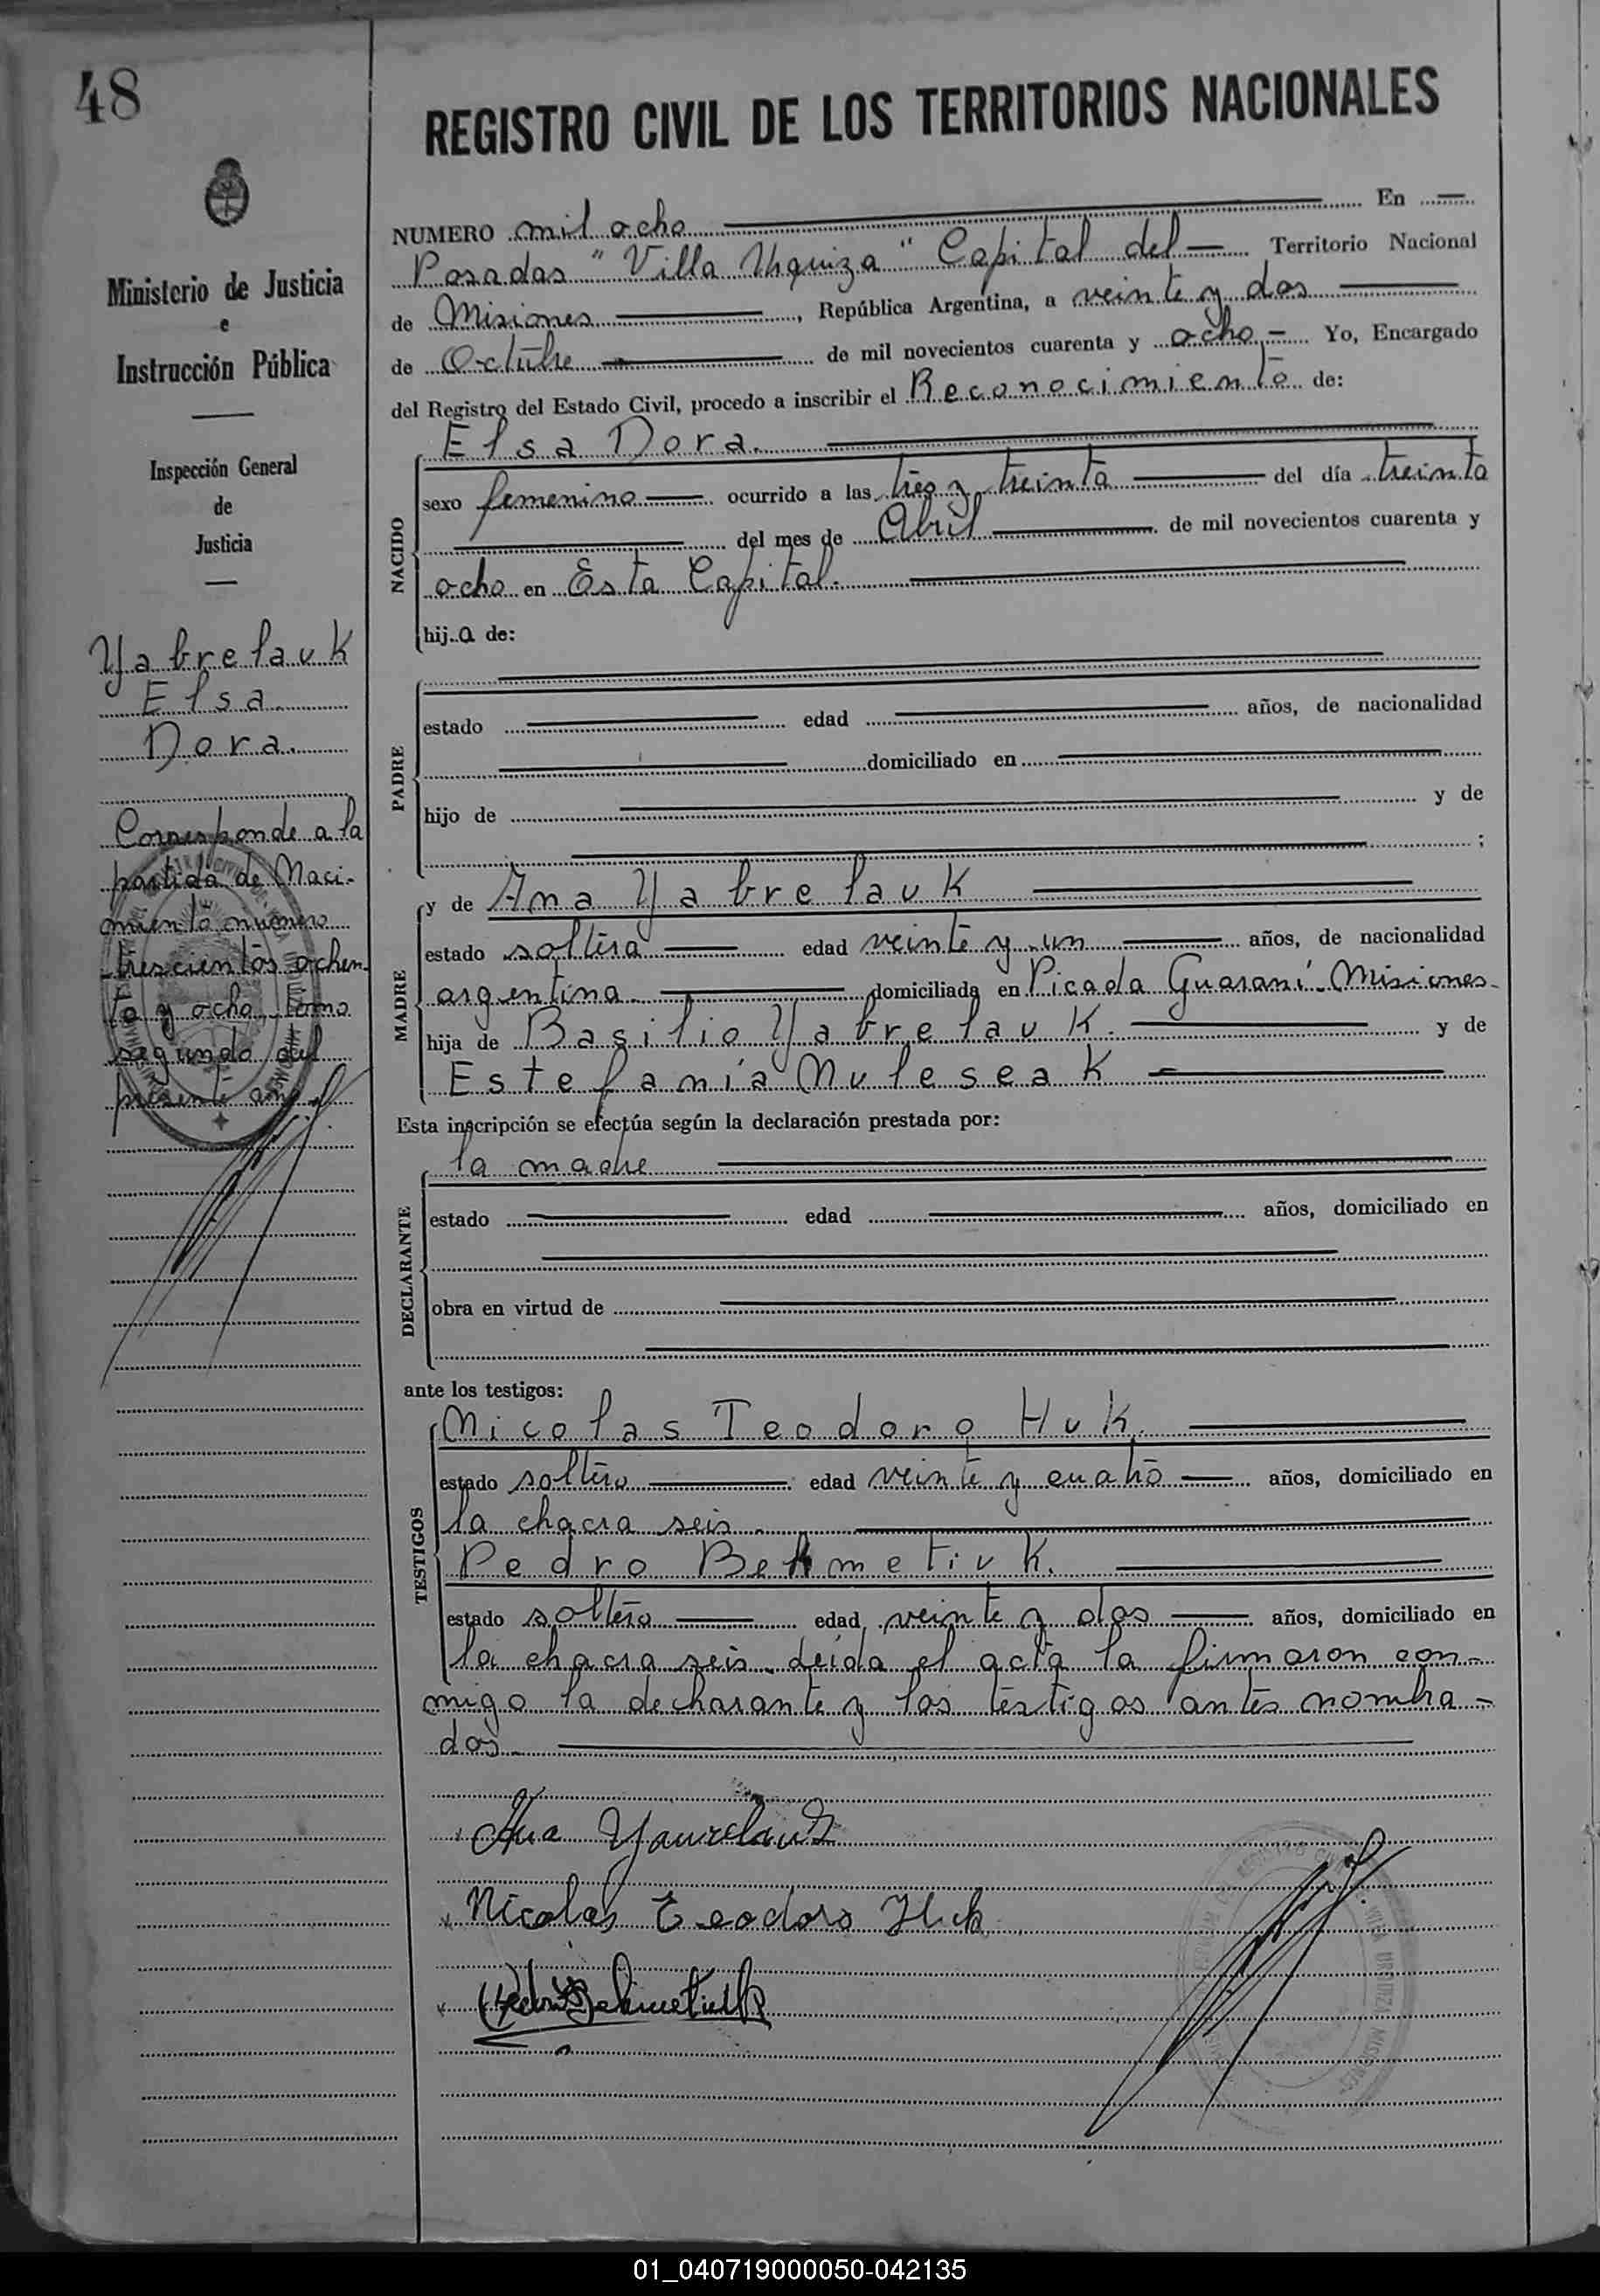 48
REGISTRO CIVIL DE LOS TERRITORIOS NACIONALES
Ministerio de Justicia
e
Instrucción Pública
Inspección General
de
Justicia
Yabrelauk
Elsa
Dora.
Corresponde a la
partida de Naci-
miento número
trescientos ochen-
ta y ocho tomo
segundo del
presente año
NUMERO mil ocho En
Posadas "Villa Urquiza" Capital del Territorio Nacional
de Misiones, República Argentina, a veinte y dos
de Octubre de mil novecientos cuarenta y ocho Yo, Encargado
del Registro del Estado Civil, procedo a inscribir el Reconocimiento de:
NACIDO
Elsa Dora.
sexo femenino ocurrido a las tres y treinta del día treinta
del mes de Abril de mil novecientos cuarenta y
ocho en Esta Capital.
hija de:
PADRE
estado edad años, de nacionalidad
domiciliado en
hijo de y de
;
MADRE
y de Ana Yabrelauk
estado soltera edad veinte y un años, de nacionalidad
argentina domiciliada en Picada Guaraní - Misiones-
hija de Basilio Yabrelauk. y de
Estefanía Nuleseak
Esta inscripción se efectúa según la declaración prestada por:
DECLARANTE
la madre
estado edad años, domiciliado en
obra en virtud de
ante los testigos:
TESTIGOS
Nicolas Teodoro Huk.
estado soltero edad veinte y cuatro años, domiciliado en
la chacra seis.
Pedro Bekmetiuk.
estado soltero edad veinte y dos años, domiciliado en
la chacra seis. Leída el acta la firmaron con-
migo la declarante y los testigos antes nombra-
dos.
Ana Yaurelauk
Nicolas Teodoro Huk
Pedro Bekmetiuk
01_040719000050-042135